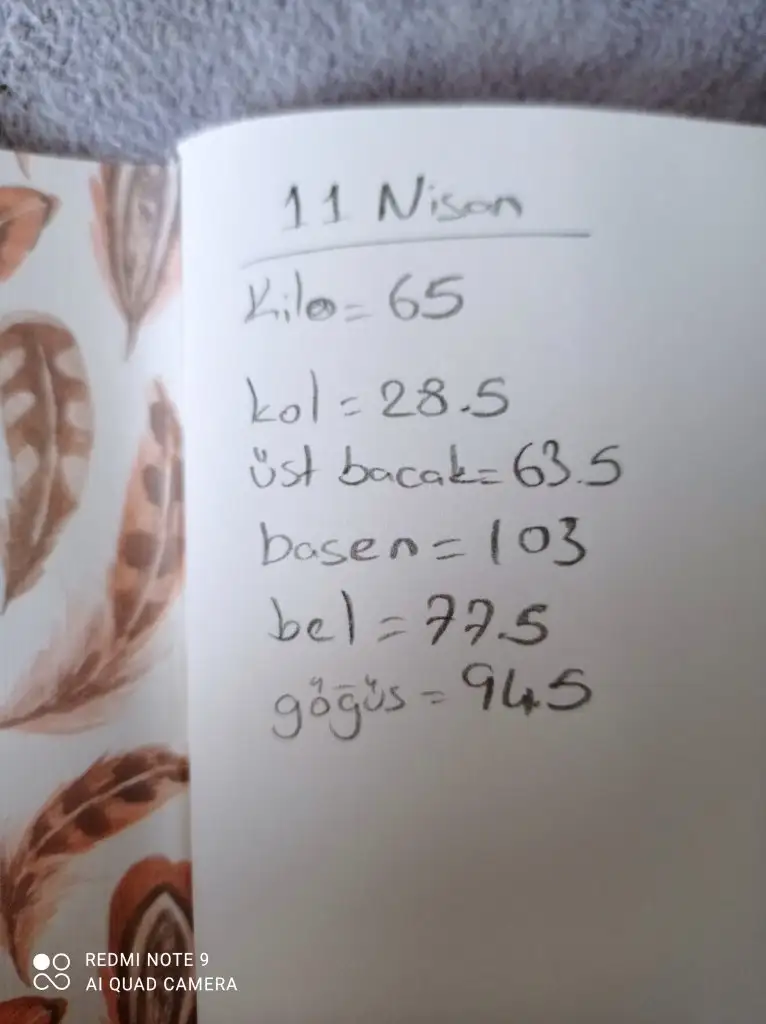 11 Nisan
Kilo = 65
kol = 28.5
üst bacak = 63.5
basen = 103
bel = 77.5
göğüs = 94.5
REDMI NOTE 9
AI QUAD CAMERA